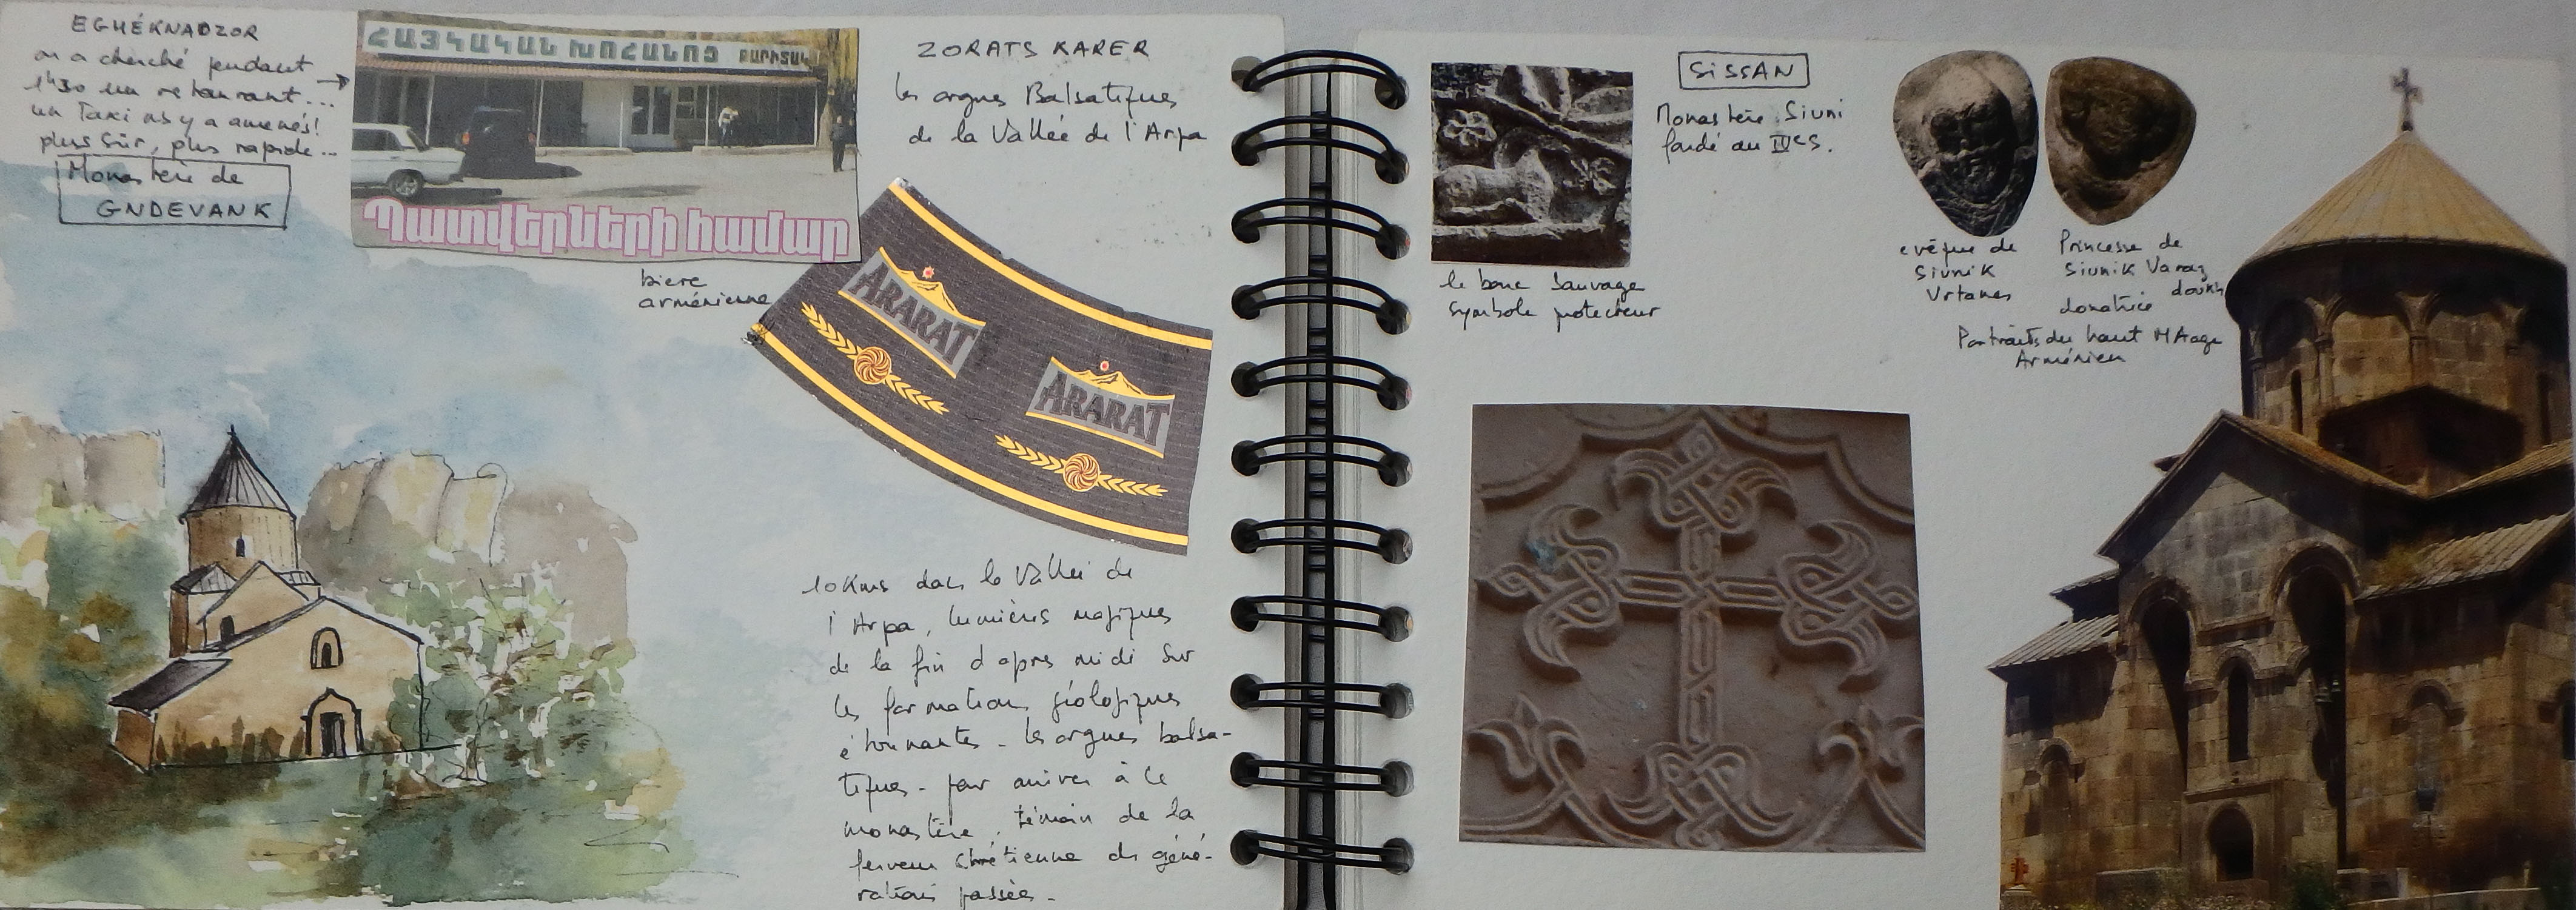 EGHÉKNADZOR
on a cherché pendant
1h30 un restaurant...
un Taxi ns y a amenés!
plus sûr, plus rapide...
Monastère de
GNDEVANK
ՀԱՅԿԱԿԱՆ ԽՈՀԱՆՈՑ ԲԱՐԻՏԱԿ
Պատվերների համար
ZORATS KARER
les orgues Balsatiques
de la Vallée de l'Arpa
bière
arménienne
ARARAT
ARARAT
10 Kms dans la Vallée de
l'Arpa, lumières magiques
de la fin d'après midi sur
les formations géologiques
étonnantes - les orgues balsa-
tiques - pour arriver à ce
monastère, témoin de la
ferveur chrétienne des géné-
rations passées.
SISSAN
Monastère Siuni
fondé au IVe S.
le bouc sauvage
symbole protecteur
évêque de
Siunik
Urtanes
Princesse de
Siunik Varaz
doukh
donatrice
Portraits du haut M Aage
Arménien